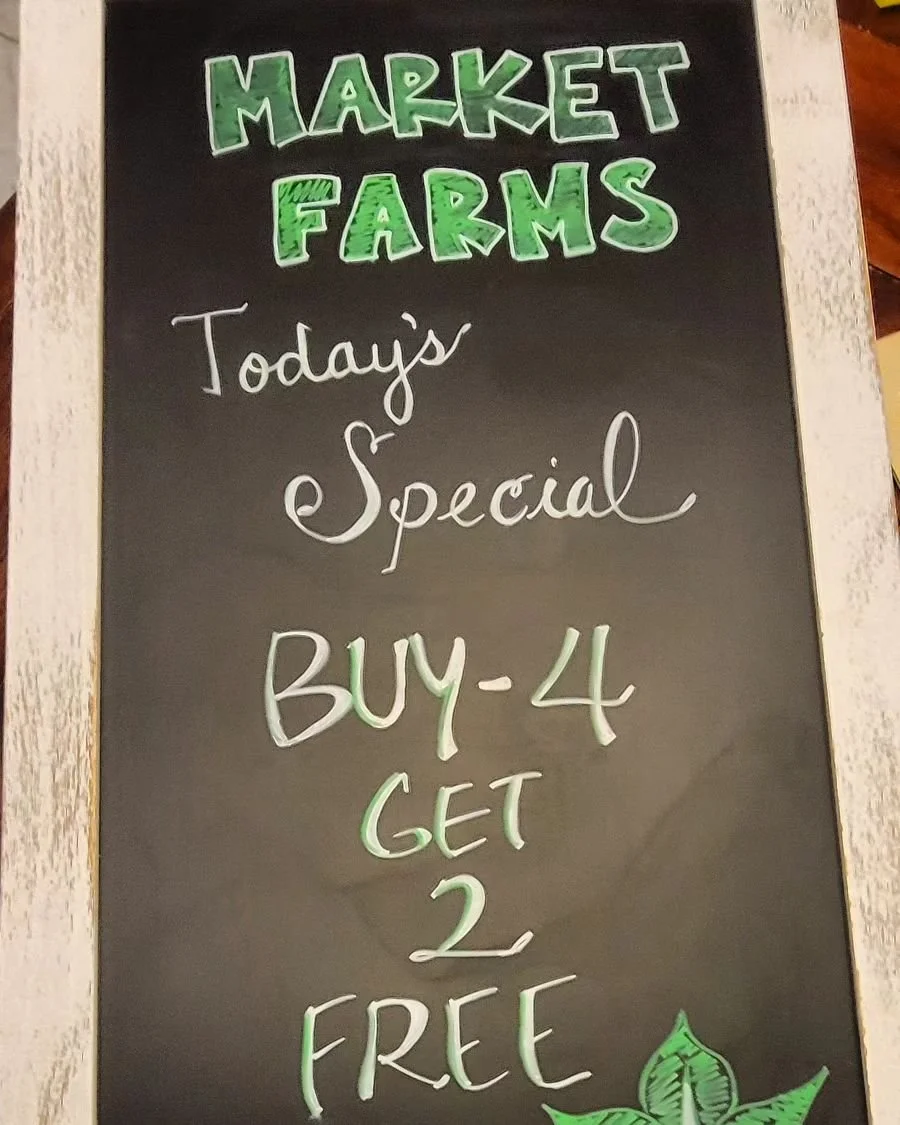 MARKET
FARMS
Today's
Special
BUY-4
GET
2
FREE